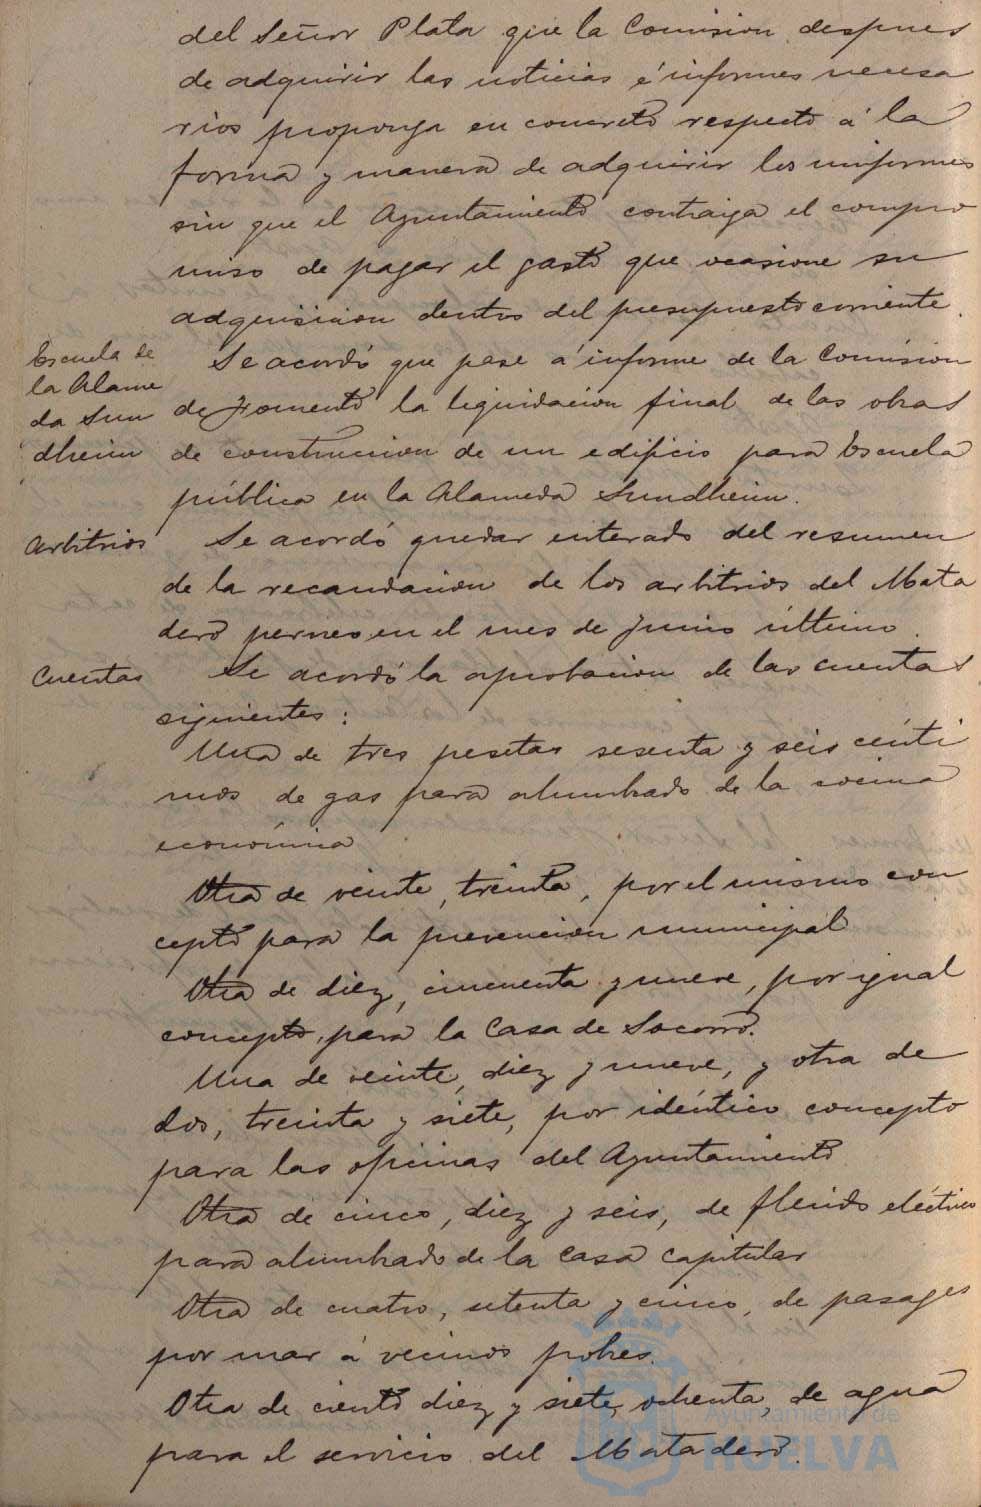 del Señor Plata que la Comision despues
de adquirir las noticias é informes necesa
rios proponga en concreto respecto á la
forma y manera de adquirir los uniformes
sin que el Ayuntamiento contraiga el compro
miso de pagar el gasto que ocasione su
adquisicion dentro del presupuesto corriente.
Escuela de
la Alame
da Sun
dheim
Se acordó que pase á informe de la Comision
de Fomento la liquidacion final de las obras
de construccion de un edificio para Escuela
pública en la Alameda Sundheim.
Arbitrios
Se acordó quedar enterado del resumen
de la recaudacion de los arbitrios del Mata
dero en el mes de Junio último.
Cuentas
Se acordó la aprobacion de las cuentas
siguientes:
Una de tres pesetas sesenta y seis cénti
mos de gas para alumbrado de la cocina
económica
Otra de veinte, treinta, por el mismo con
cepto para la prevencion municipal
Otra de diez, cincuenta y nueve, por igual
concepto, para la Casa de Socorro.
Una de veinte, diez y nueve, y otra de
dos, treinta y siete, por idéntico concepto
para las oficinas del Ayuntamiento
Otra de cinco, diez y seis, de flúido eléctrico
para alumbrado de la Casa Capitular
Otra de cuatro, setenta y cinco, de pasages
por mar á vecinos pobres.
Otra de ciento diez y siete, ochenta, de agua
para el servicio del Matadero.
Ayuntamiento de
HUELVA